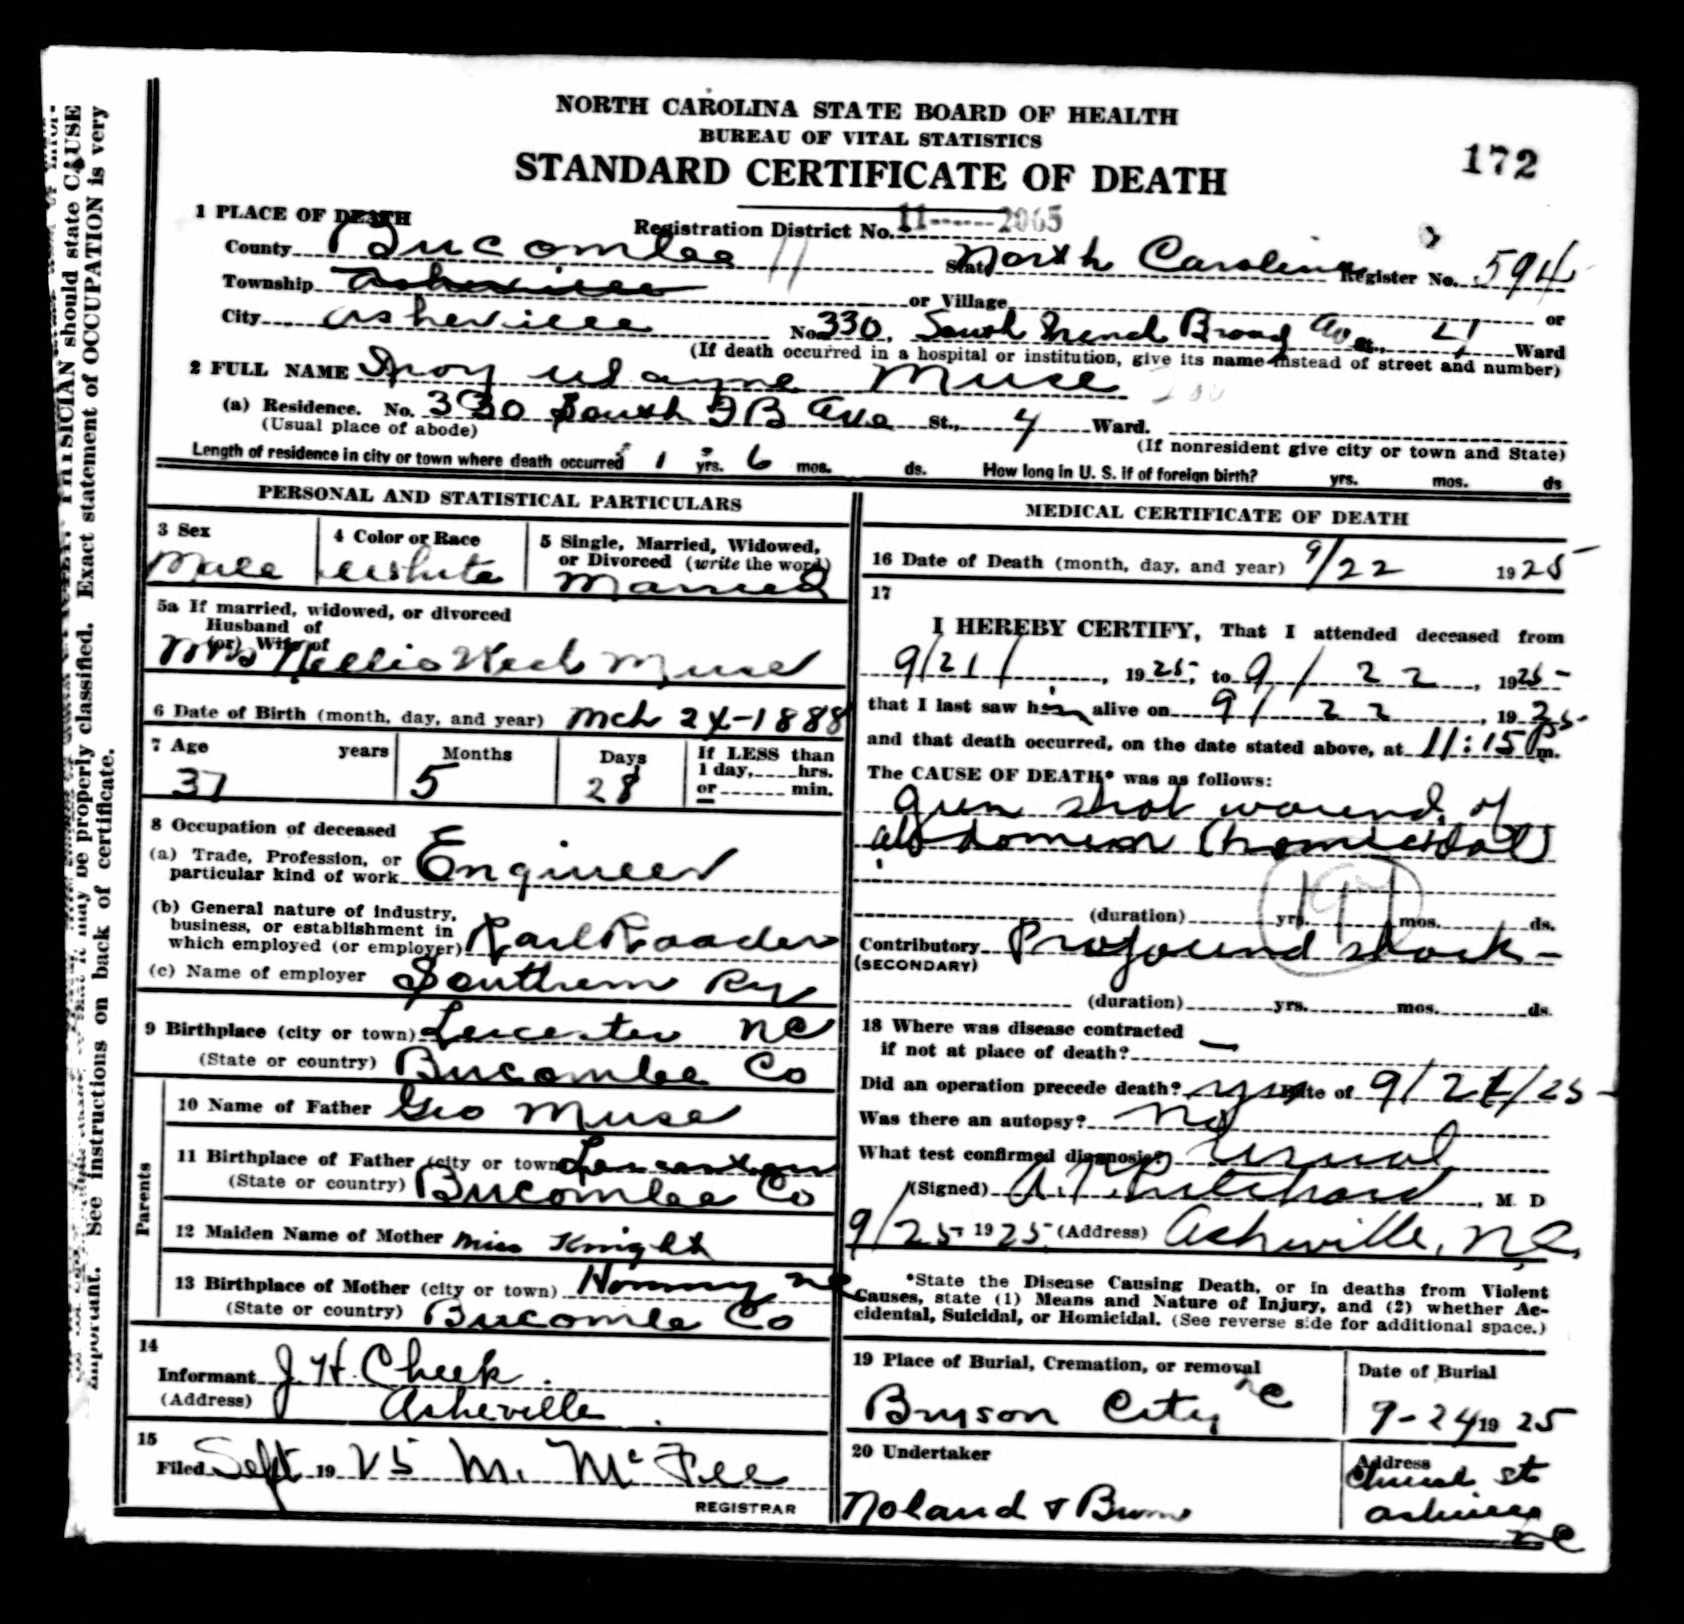 NORTH CAROLINA STATE BOARD OF HEALTH
BUREAU OF VITAL STATISTICS
STANDARD CERTIFICATE OF DEATH
172
1 PLACE OF DEATH
Registration District No. 11-----2065
County Bucombee 11 State North Carolina Register No. 594
Township Asheville or Village
City Asheville No. 330, South French Broad Av St., 4 Ward or
(If death occurred in a hospital or institution, give its name instead of street and number)
2 FULL NAME Wayne Muse
(a) Residence. No. 330 South F B Ave St., 4 Ward.
(Usual place of abode) (If nonresident give city or town and State)
Length of residence in city or town where death occurred 1 yrs. 6 mos. ds. How long in U. S. if of foreign birth? yrs. mos. ds
PERSONAL AND STATISTICAL PARTICULARS
3 Sex Male
4 Color or Race White
5 Single, Married, Widowed, or Divorced (write the word) Married
5a If married, widowed, or divorced
Husband of
(or) Wife of
Mrs Nellie Muse
6 Date of Birth (month, day, and year) Mch 24-1888
7 Age years Months Days If LESS than 1 day, hrs. or min.
37 5 28
8 Occupation of deceased
(a) Trade, Profession, or particular kind of work Engineer
(b) General nature of industry, business, or establishment in which employed (or employer) RailRoader
(c) Name of employer Southern Ry
9 Birthplace (city or town) Leicester NC
(State or country) Bucombee Co
Parents
10 Name of Father Geo Muse
11 Birthplace of Father (city or town)
(State or country) Bucombee Co
12 Maiden Name of Mother Miss Knight
13 Birthplace of Mother (city or town) Hominy NC
(State or country) Bucombe Co
14
Informant J. H. Cheek.
(Address) Asheville.
15
Filed Sept 1925 M. McFee
REGISTRAR
MEDICAL CERTIFICATE OF DEATH
16 Date of Death (month, day, and year) 9/22 1925
17
I HEREBY CERTIFY, That I attended deceased from
9/21/, 1925, to 9/22, 1925
that I last saw him alive on 9/22, 1925
and that death occurred, on the date stated above, at 11:15 P m.
The CAUSE OF DEATH* was as follows:
gun shot wound of
abdomen (homicidal)
197
(duration) yrs. mos. ds.
Contributory Profound shock
(SECONDARY)
(duration) yrs. mos. ds.
18 Where was disease contracted
if not at place of death? —
Did an operation precede death? yes Date of 9/21/25
Was there an autopsy? No
What test confirmed diagnosis? Usual
(Signed) Pritchard, M. D
9/25, 1925 (Address) Asheville, N.C.
*State the Disease Causing Death, or in deaths from Violent
Causes, state (1) Means and Nature of Injury, and (2) whether Ac-
cidental, Suicidal, or Homicidal. (See reverse side for additional space.)
19 Place of Burial, Cremation, or removal
Bryson City NC
Date of Burial
9-24 1925
20 Undertaker
Noland & Brown
Address
Church St
Asheville
NC
PHYSICIAN should state CAUSE
Exact statement of OCCUPATION is very
may be properly classified.
important. See instructions on back of certificate.